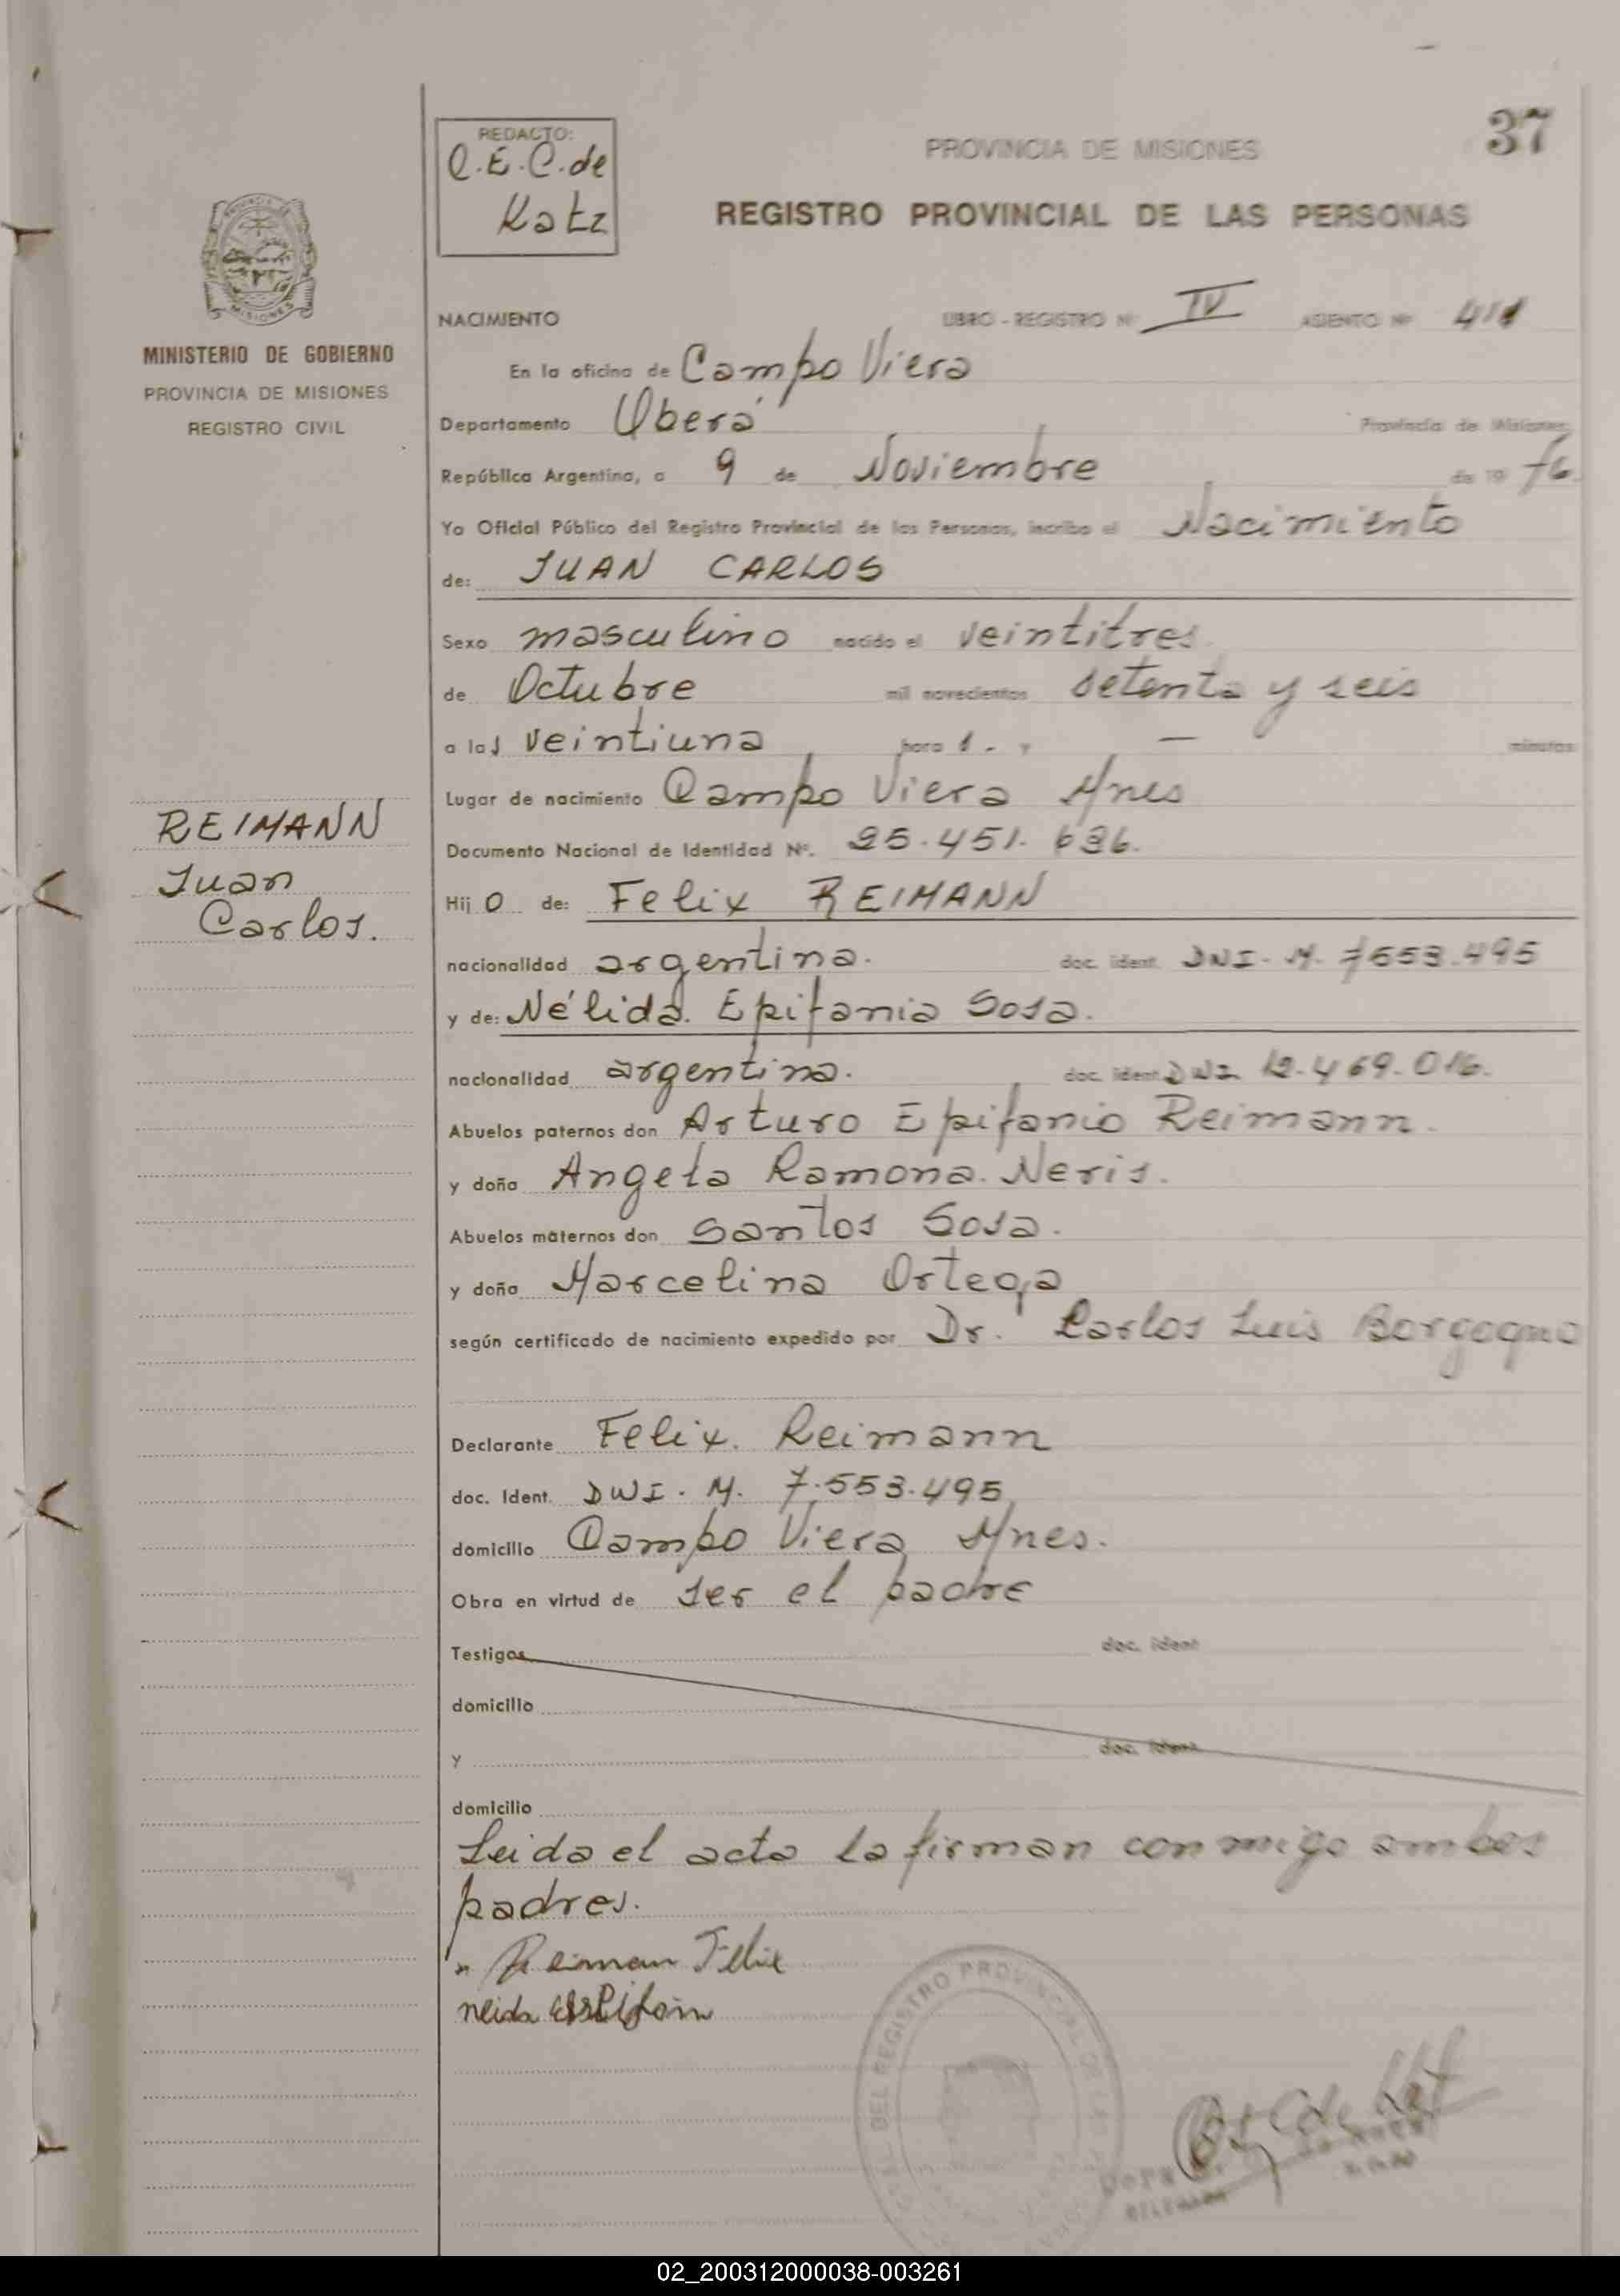 37
REDACTO:
C.E.C. de
Katz
PROVINCIA DE MISIONES
REGISTRO PROVINCIAL DE LAS PERSONAS
MISIONES
MINISTERIO DE GOBIERNO
PROVINCIA DE MISIONES
REGISTRO CIVIL
NACIMIENTO LIBRO - REGISTRO Nº IV ASIENTO Nº 411
En la oficina de Campo Viera
Departamento Oberá Provincia de Misiones,
República Argentina, a 9 de Noviembre de 19 76.
Yo Oficial Público del Registro Provincial de las Personas, incribo el Nacimiento
de: JUAN CARLOS
Sexo masculino nacido el veintitres
de Octubre mil novecientos setenta y seis
a las veintiuna hora s. y — minutos
Lugar de nacimiento Campo Viera Mnes
Documento Nacional de Identidad Nº. 25.451.636.
REIMANN
Juan
Carlos.
Hijo de: Felix REIMANN
nacionalidad argentina. doc. ident. DNI. M. 7553.495
y de: Nélida Epifania Sosa.
nacionalidad argentina. doc. ident. DNI 12.469.016.
Abuelos paternos don Arturo Epifanio Reimann.
y doña Angela Ramona Neris.
Abuelos maternos don Santos Sosa.
y doña Marcelina Ortega
según certificado de nacimiento expedido por Dr. Carlos Luis Borgogno
Declarante Felix Reimann
doc. Ident. DNI. M. 7.553.495
domicilio Campo Viera Mnes.
Obra en virtud de ser el padre
Testigos doc. ident
domicilio
y doc. ident
domicilio
Leida el acta la firman conmigo ambos
padres.
Reiman Felix
neida
DEL REGISTRO PROVINCIAL DE LAS
02_200312000038-003261